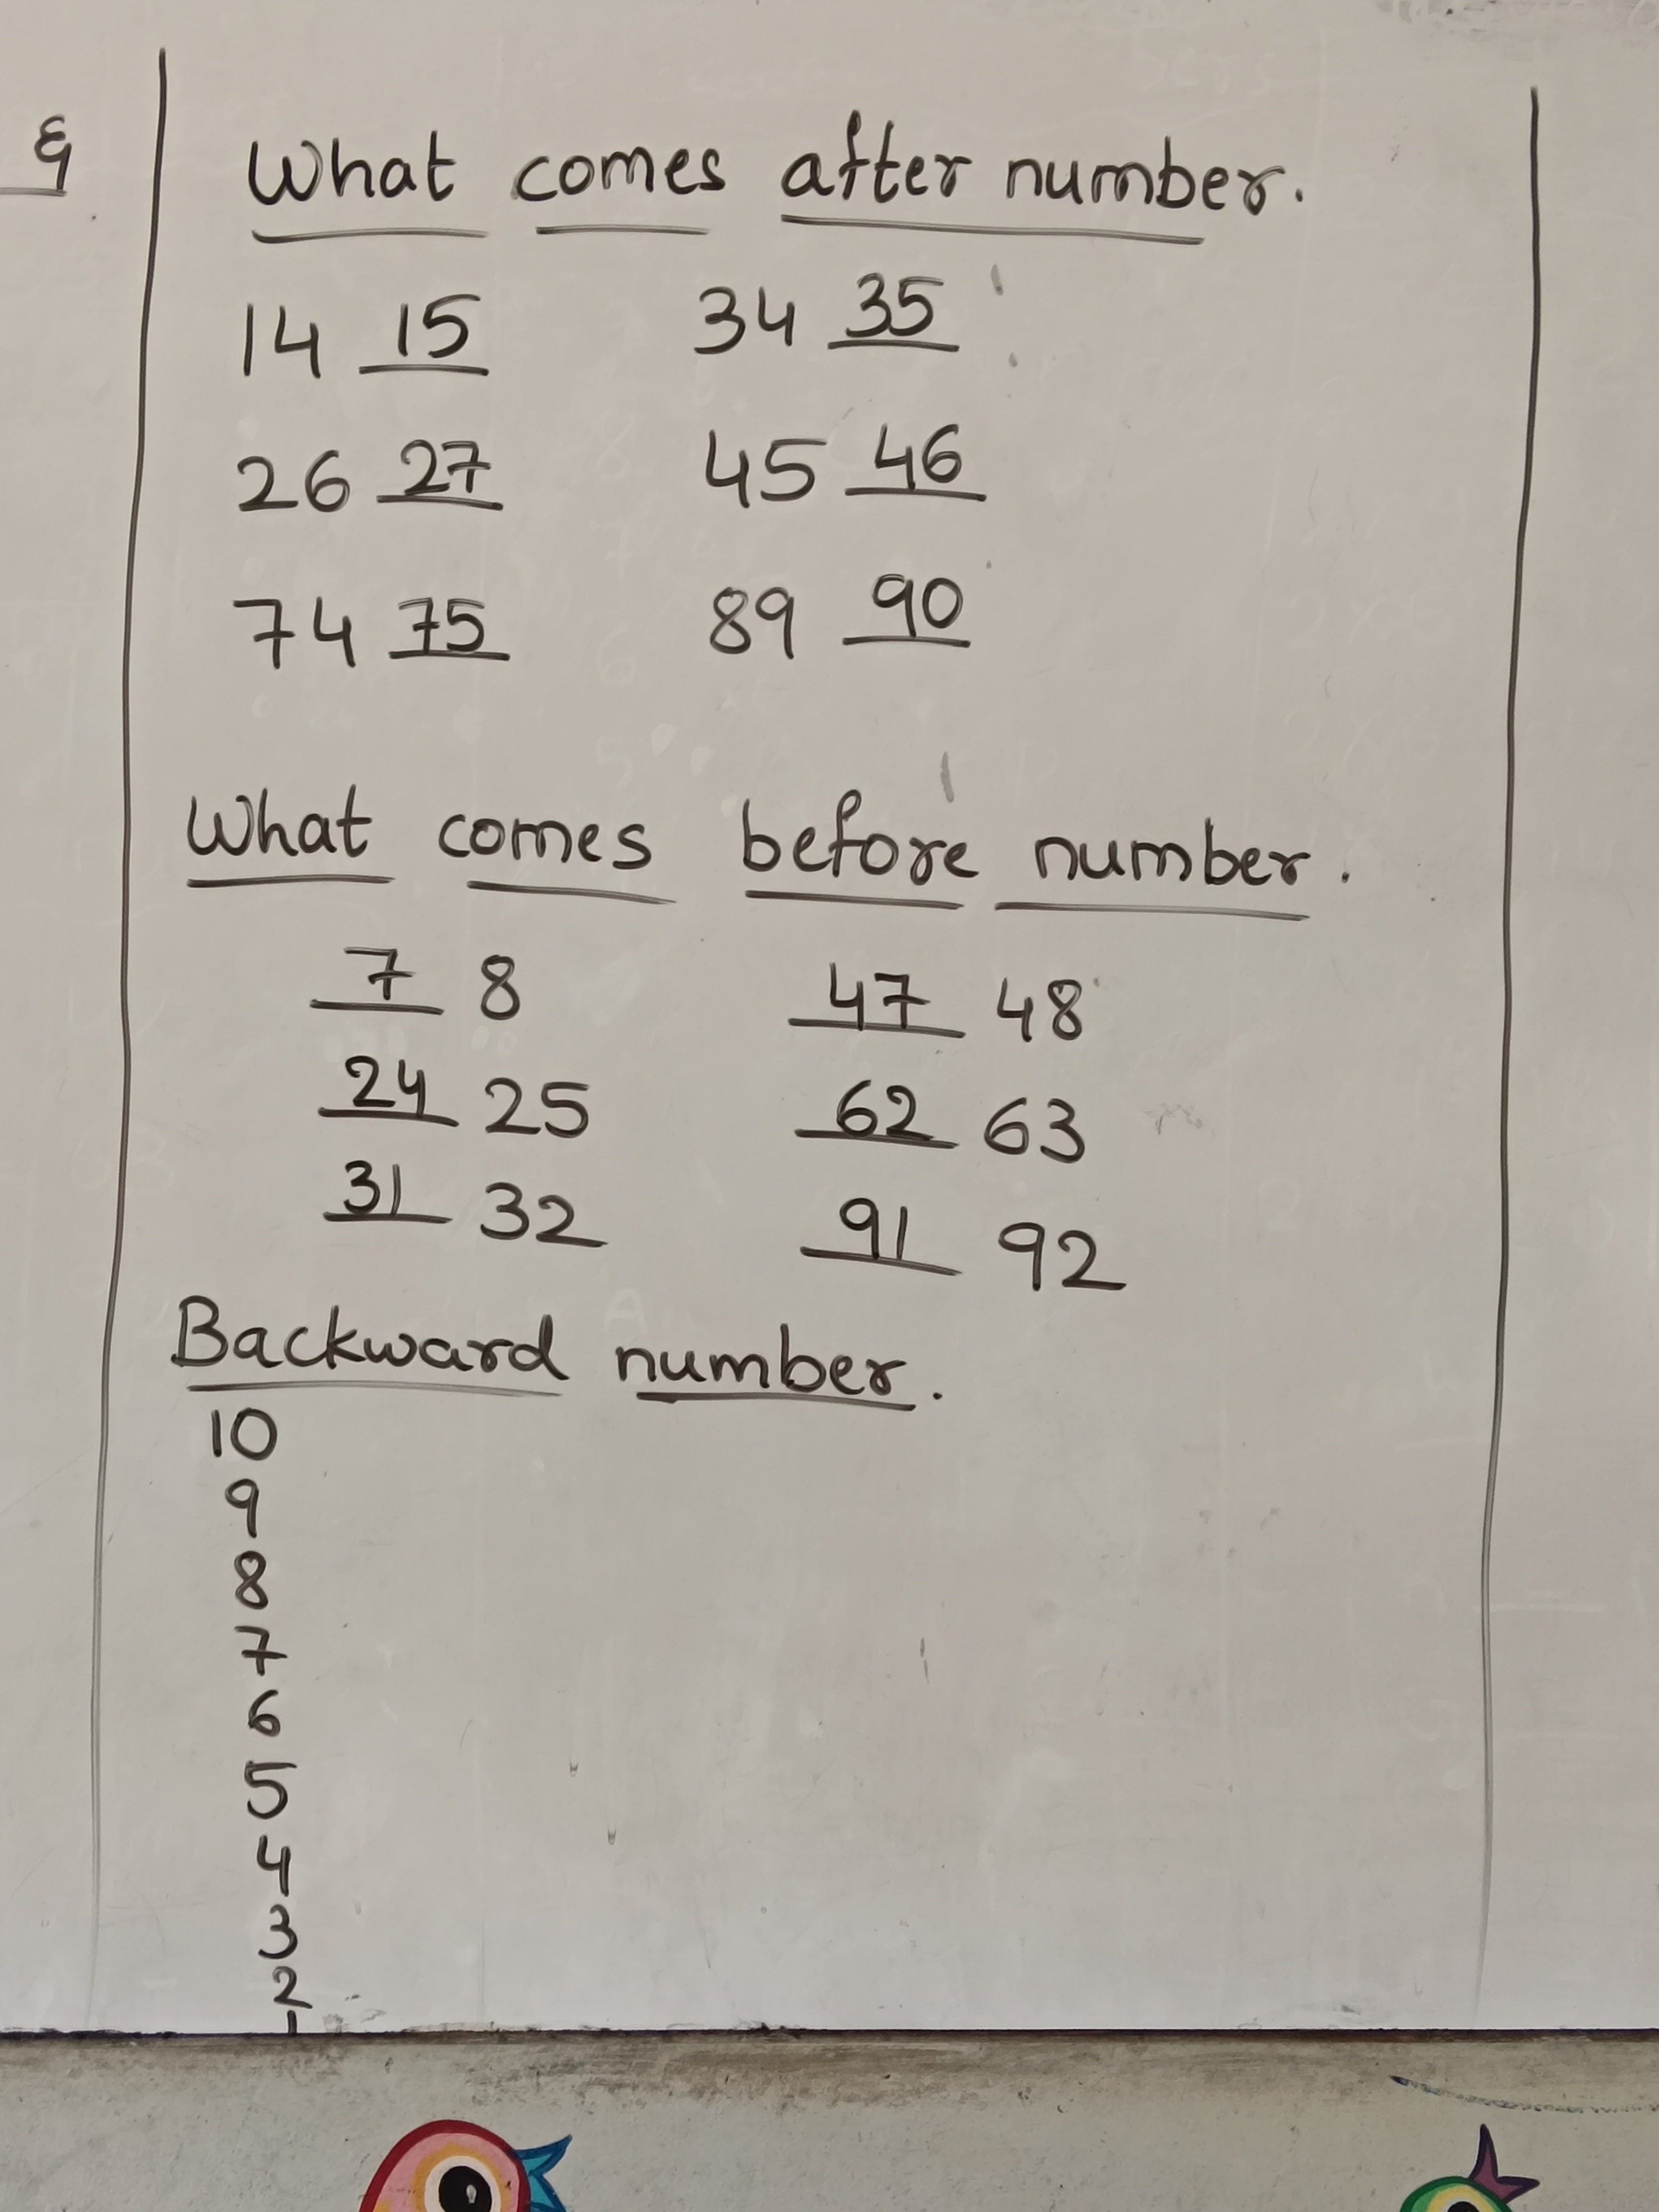 &
What comes after number.
14 15 34 35
26 27 45 46
74 75 89 90
What comes before number.
7 8 47 48
24 25 62 63
31 32 91 92
Backward number.
10
9
8
7
6
5
4
3
2
1